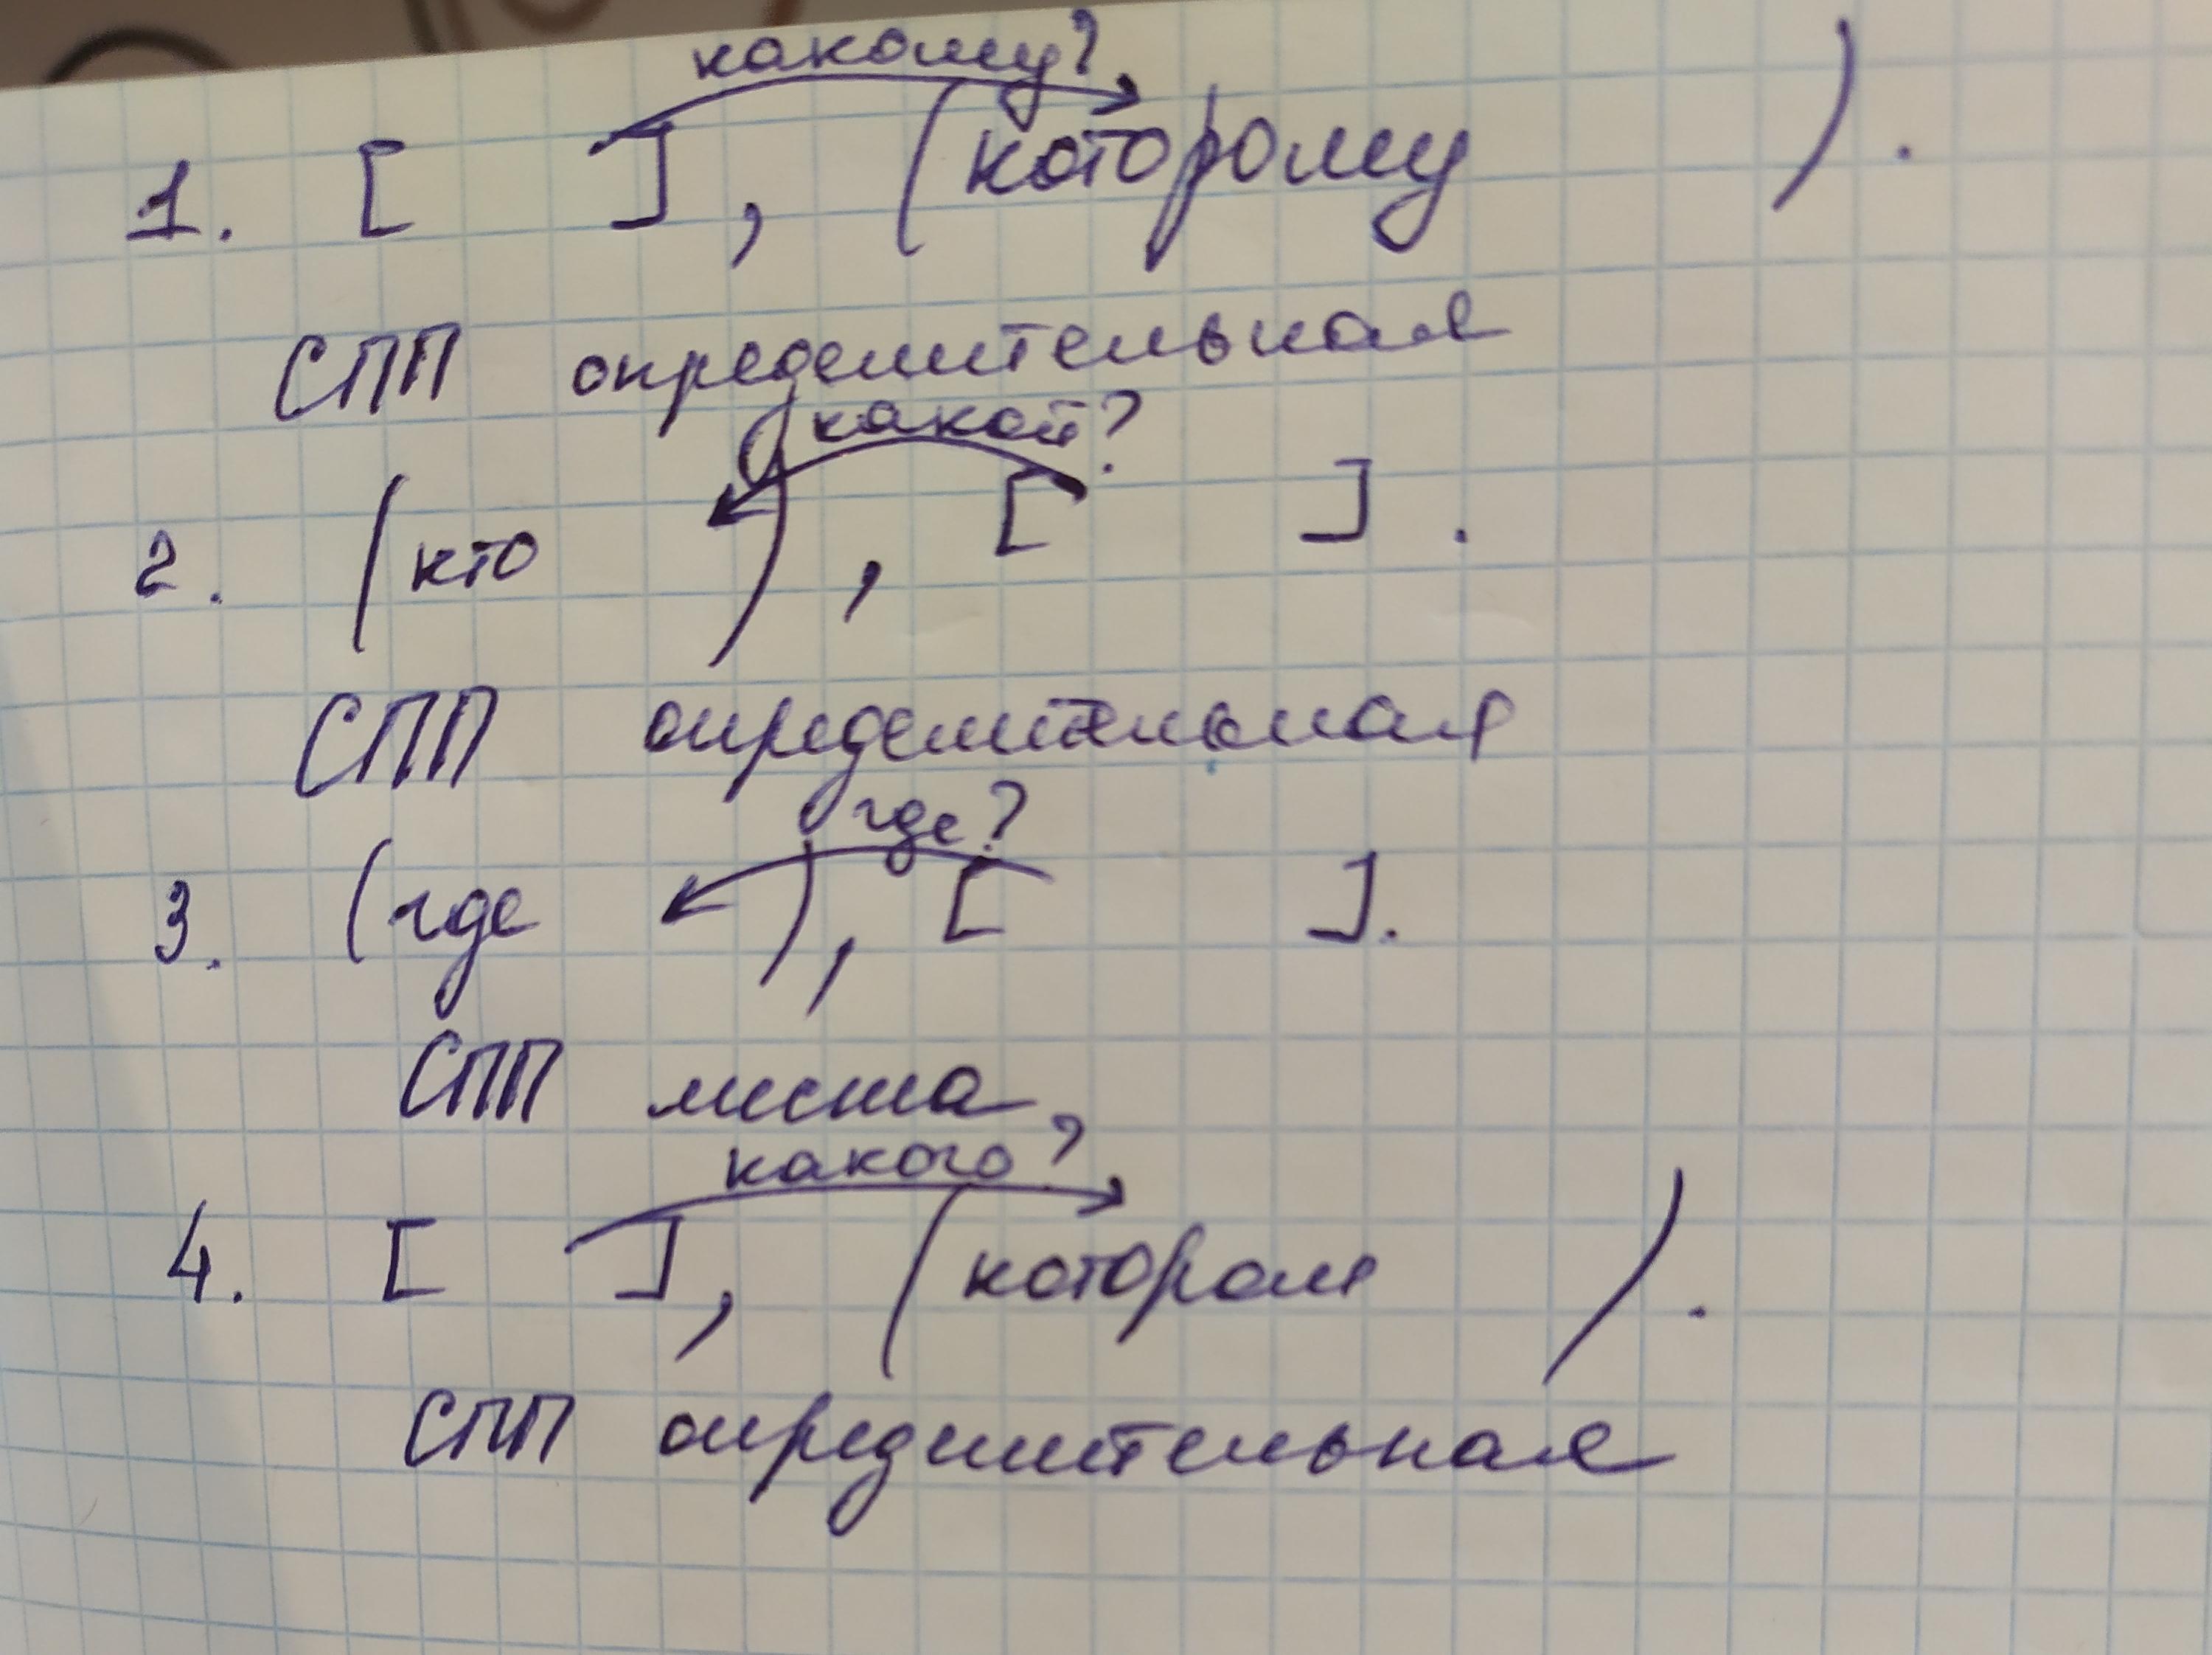 какому?
1. [ ], (которому ).
СПП определительная
какой?
2. (кто ), [ ].
СПП определительная
где?
3. (где ), [ ].
СПП места
какого?
4. [ ], (которая ).
СПП определительная